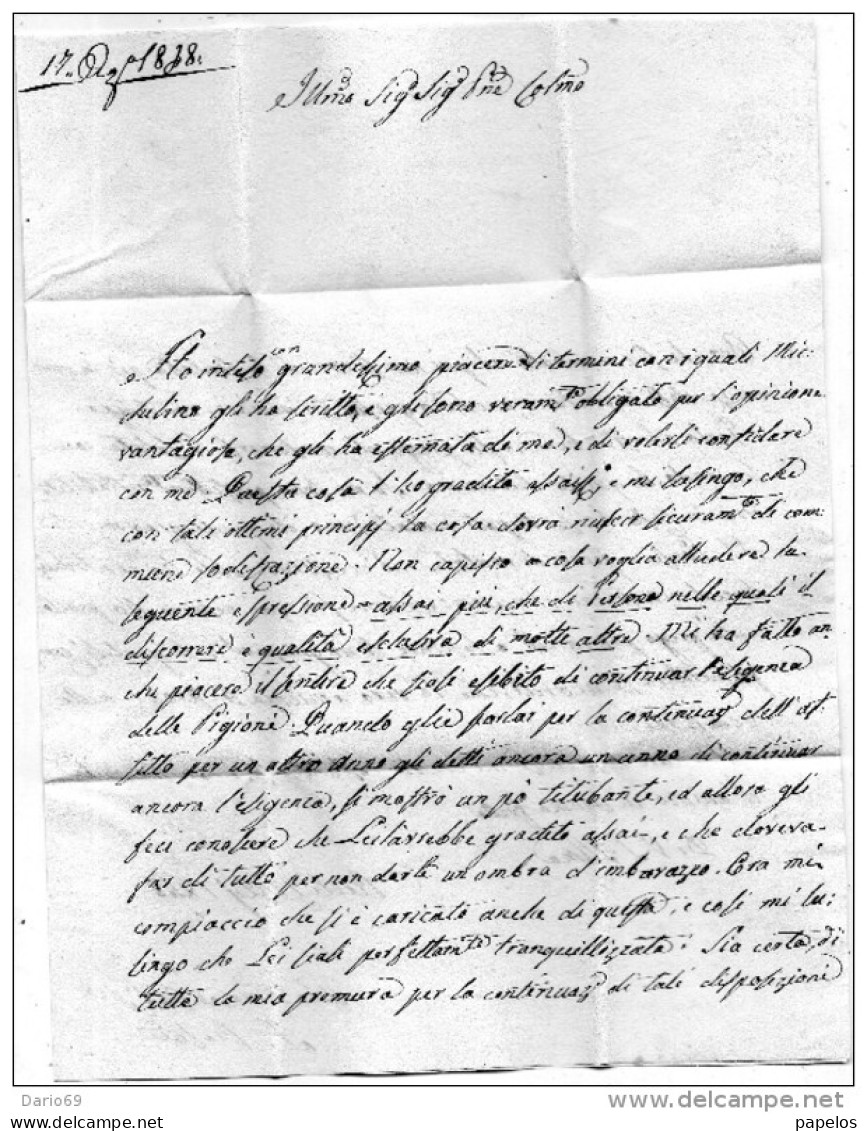 17. 1838.
Illmo Sigr Sigr Pne Colmo
Ho inteso con grandissimo piacere li termini con i quali Mic:
chelino gli ha scritto, e gli sono veramte obligato per l'opinione
vantagiosa, che gli ha esternata di me, e di volersi confidare
con me. Questa cosa l'ho gradita assaissmo e mi lusingo, che
con tali ottimi principj la cosa dovrà riuscir sicuramte di com:
mune sodisfazione. Non capisco a cosa voglia alludere la
seguente espressione = assai più, che di Persone nelle quali il
discorrere è qualità esclusiva di molte altre. Mi ha fatto an:
che piacere il sentire che siasi esibito di continuar l'esigenza
delle Pigioni. Quando glie parlai per la continuaz dell'af:
fitto per un altro anno gli detti ancora un cenno di continuar
ancora l'esigenza, si mostrò un pò titubante, ed allora gli
feci conoscere che Lei l'avrebbe gradito assai, e che doveva
far di tutto per non darle un ombra d'imbarazzo. Ora mi
compiaccio che si è caricato anche di questa, e così mi lu:
singo che Lei siasi perfettamte tranquillizzata. Sia certa, di
tutta la mia premura per la continuaz di tali disposizioni
Dario69
www.delcampe.net
papelos